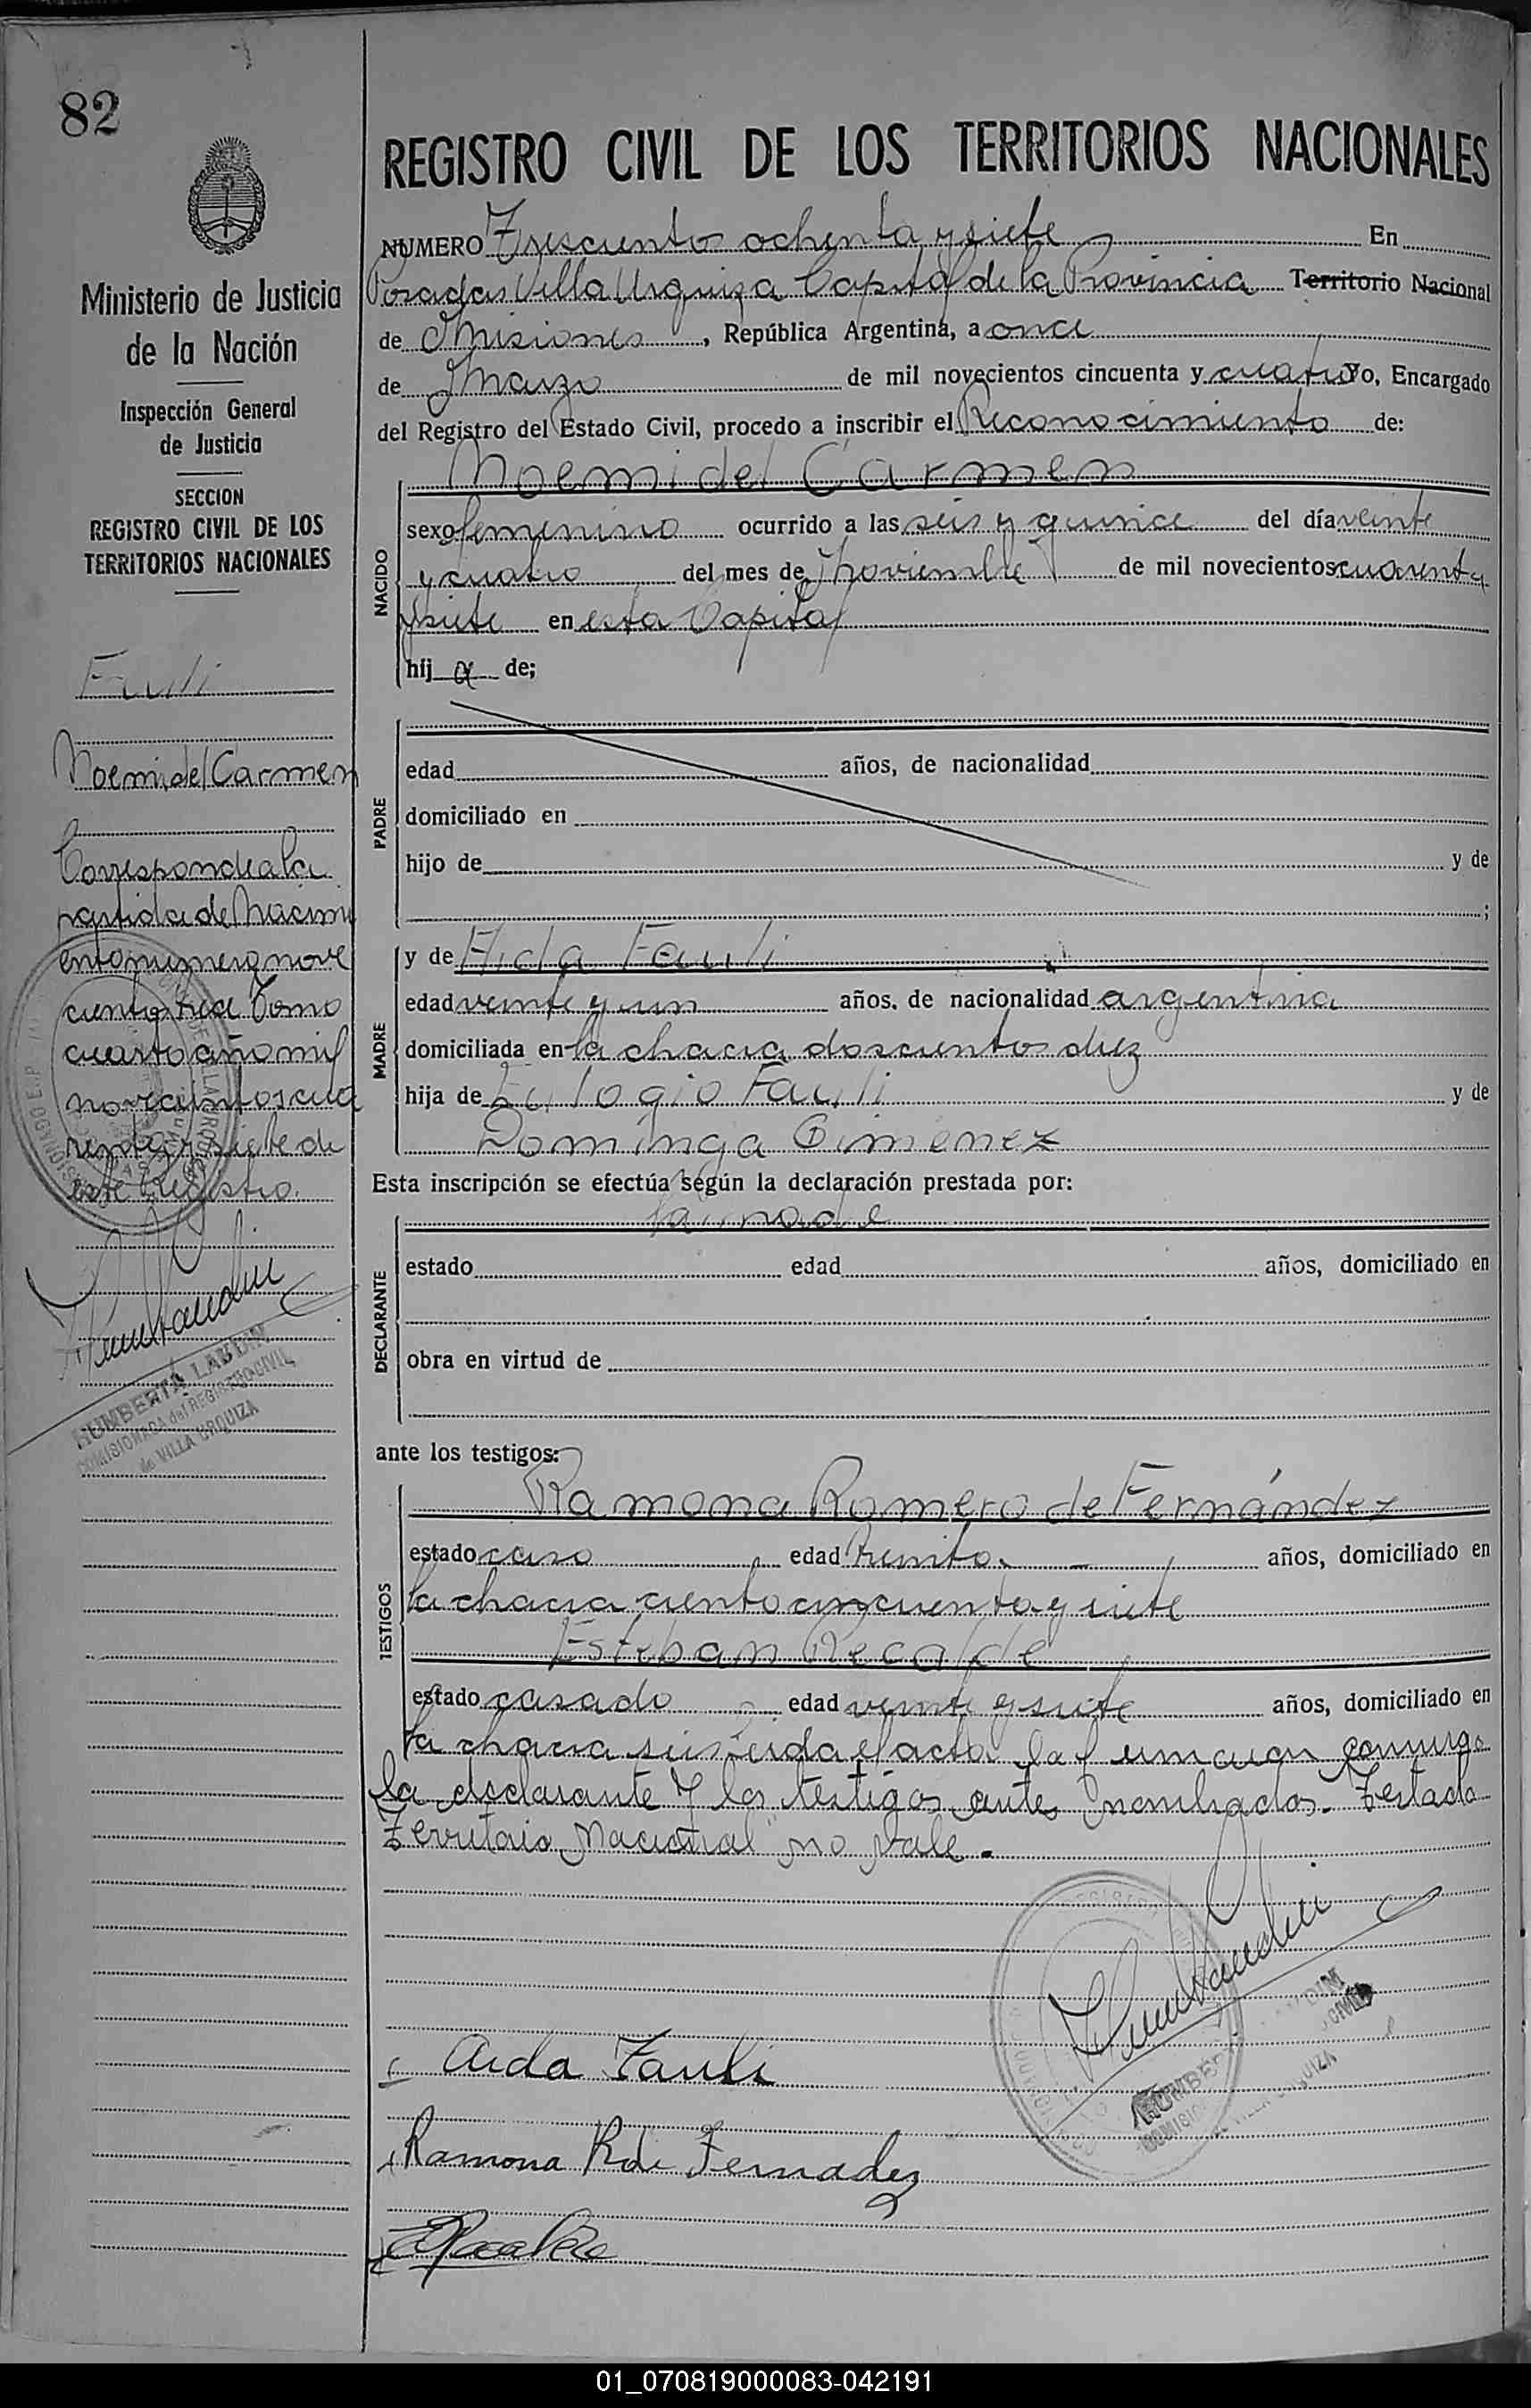 82
Ministerio de Justicia
de la Nación
Inspección General
de Justicia
SECCION
REGISTRO CIVIL DE LOS
TERRITORIOS NACIONALES
Fauli
Noemi del Carmen
Corresponde a la
partida de Nacimi
ento numero nove
cientos trece Tomo
cuarto año mil
novecientos cua
renta y siete de
este Registro.
HUMBERTA LANDIN
COMISIONADA del REGISTRO CIVIL
de VILLA URQUIZA
REGISTRO CIVIL DE LOS TERRITORIOS NACIONALES
NUMERO Trescientos ochenta y siete En
Posadas Villa Urquiza Capital de la Provincia Territorio Nacional
de Misiones, República Argentina, a once
de Marzo de mil novecientos cincuenta y cuatro Yo, Encargado
del Registro del Estado Civil, procedo a inscribir el Reconocimiento de:
Noemi del Carmen
NACIDO
sexo femenino ocurrido a las seis y quince del día veinte
y cuatro del mes de Noviembre de mil novecientos cuarenta
y siete en esta Capital
hij a de;
PADRE
edad años, de nacionalidad
domiciliado en
hijo de y de
;
MADRE
y de Aida Fauli
edad veinte y un años, de nacionalidad argentina
domiciliada en la chacra doscientos diez
hija de Eulogio Fauli y de
Dominga Gimenez
Esta inscripción se efectúa según la declaración prestada por:
DECLARANTE
la madre
estado edad años, domiciliado en
obra en virtud de
ante los testigos:
TESTIGOS
Ramona Romero de Fernández
estado casada edad treinta años, domiciliado en
la chacra ciento cincuenta y siete
Esteban Recalde
estado casado edad veinte y siete años, domiciliado en
la chacra seis Leida el acta la firman conmigo
la declarante y los testigos antes nombrados. Testado
"Territorio Nacional" no vale.
Aida Fauli
Ramona R de Fernadez
ERecalde
01_070819000083-042191